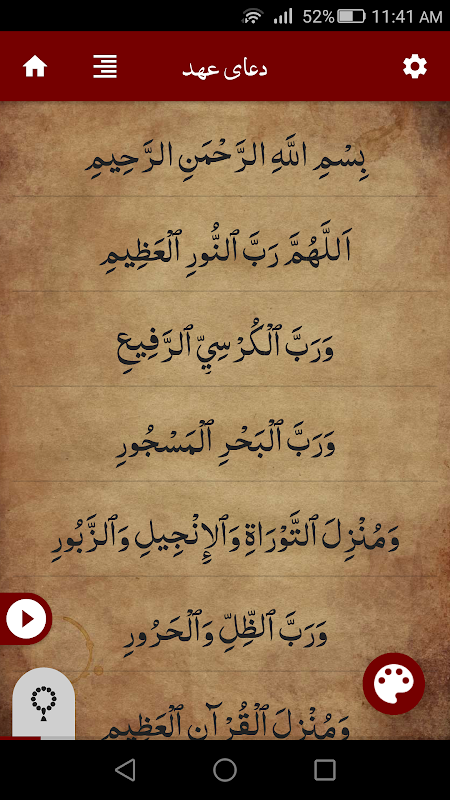 52% 11:41 AM
دعای عهد
بِسْمِ اللَّهِ الرَّحْمَنِ الرَّحِيمِ
اَللَّهُمَّ رَبَّ ٱلنُّورِ ٱلْعَظِيمِ
وَرَبَّ ٱلْكُرْسِيِّ ٱلرَّفِيعِ
وَرَبَّ ٱلْبَحْرِ ٱلْمَسْجُورِ
وَمُنْزِلَ ٱلتَّوْرَاةِ وَٱلإِنْجِيلِ وَٱلزَّبُورِ
وَرَبَّ ٱلظِّلِّ وَٱلْحَرُورِ
وَمُنْزِلَ ٱلْقُرْآنِ ٱلْعَظِيمِ